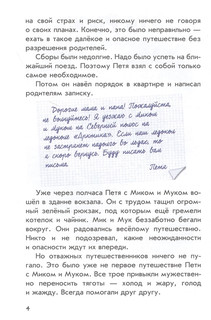 на свой страх и риск, никому ничего не говоря
о своих планах. Конечно, это было неправильно —
ехать в такое далёкое и опасное путешествие без
разрешения родителей.
Сборы были недолгие. Надо было успеть на бли-
жайший поезд. Поэтому Петя взял с собой только
самое необходимое.
Потом он навёл порядок в квартире и написал
родителям записку.
Дорогие мама и папа! Пожалуйста
не волнуйтесь! Я уезжаю с Миком
и Муком на Северный полюс на
ледоколе «Арктика». Если наш ледокол
не застрянет надолго во льдах, то
я скоро вернусь. Буду писать вам
письма.
Петя
Уже через полчаса Петя с Миком и Муком во-
шёл в здание вокзала. Он с трудом тащил огром-
ный зелёный рюкзак, под которым ещё гремели
котелок и чайник. Мик и Мук беззаботно бегали
вокруг. Они радовались весёлому путешествию.
Никто и не подозревал, какие неожиданности
и опасности ждут их впереди.
Но отважных путешественников ничего не пу-
гало. Это было уже не первое путешествие Пети
с Миком и Муком. Все трое привыкли мужествен-
но переносить тяготы — холод и жару, голод
и жажду. Всегда помогали друг другу.
4